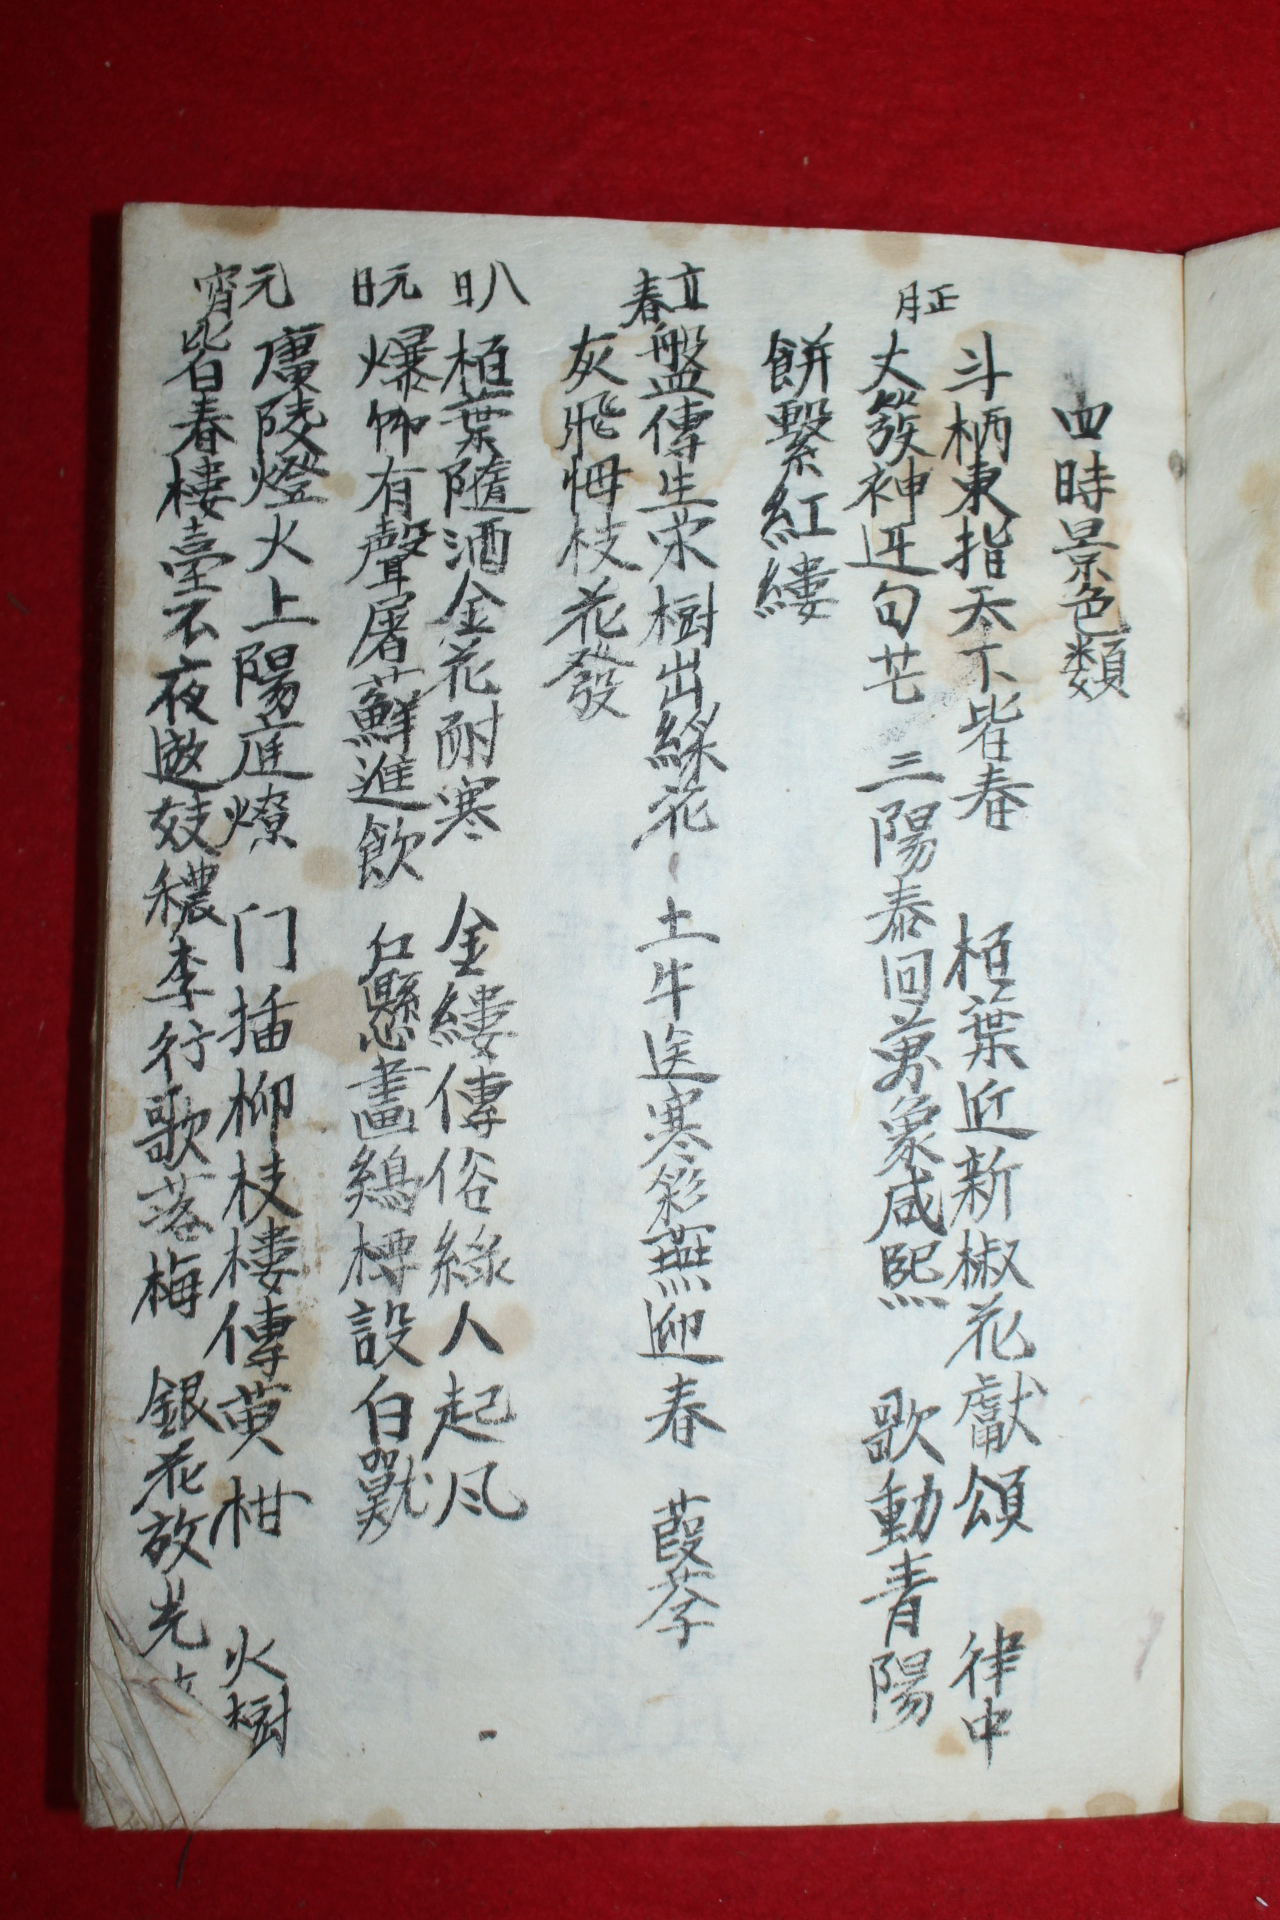 四時景色類
正月
斗柄東指天下皆春 栢葉近新椒花獻頌 律中
太簇神迓句芒 三陽泰回萬象咸熙 歌動青陽
餠繫紅縷
立春
盤傳生菜樹出綵花 土牛送寒彩燕迎春 葭莩
灰飛梅枝花發
人日
栢葉隨酒金花耐寒 金縷傳俗綠人起風
元日
爆竹有聲屠蘇進飲 戶懸畫鷄樽設白獸
元宵
廣陵燈火上陽庭燎 门插柳枝樓傳黄柑 火樹
皆春樓臺不夜遊妓穠李行歌落梅 銀花放光